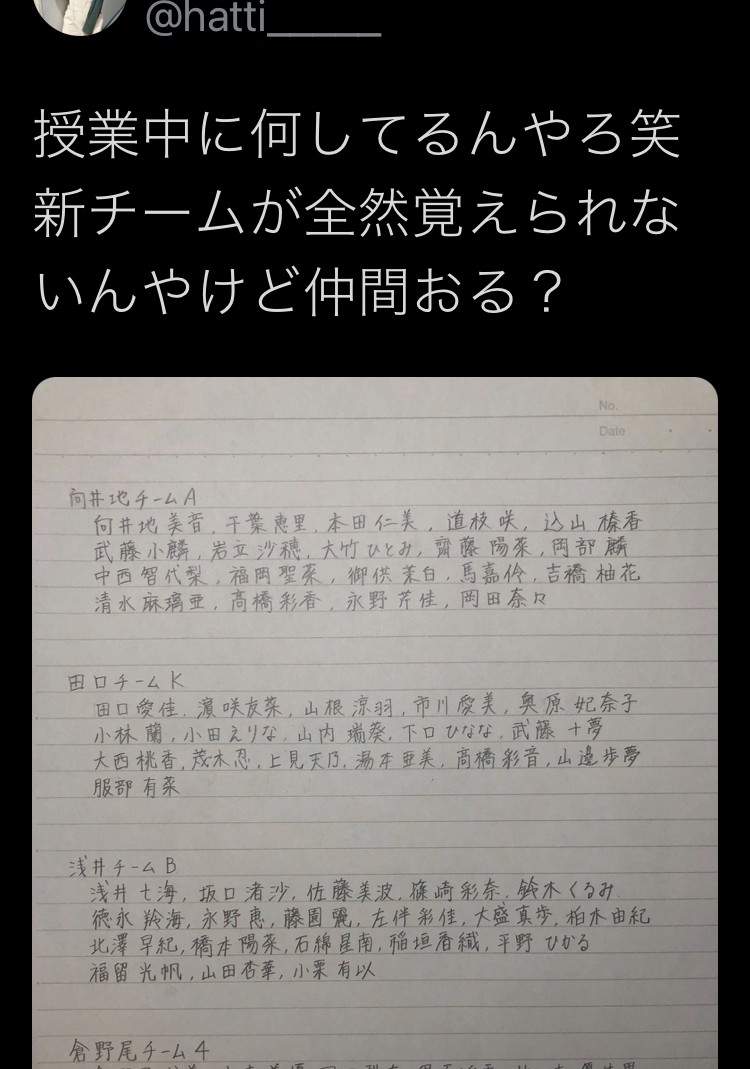 @hatti_____
授業中に何してるんやろ笑
新チームが全然覚えられな
いんやけど仲間おる？
No.
Date
向井地チームA
向井地美音, 千葉恵里, 本田仁美, 道枝咲, 込山榛香
武藤小麟, 岩立沙穂, 大竹ひとみ, 齋藤陽菜, 岡部麟
中西智代梨, 福岡聖菜, 御供茉白, 馬嘉伶, 吉橋柚花
清水麻璃亜, 高橋彩香, 永野芹佳, 岡田奈々
田口チームK
田口愛佳, 濵咲友菜, 山根涼羽, 市川愛美, 奥原妃奈子
小林蘭, 小田えりな, 山内瑞葵, 下口ひなな, 武藤十夢
大西桃香, 茂木忍, 上見天乃, 湯本亜美, 高橋彩音, 山邊歩夢
服部有菜
浅井チームB
浅井七海, 坂口渚沙, 佐藤美波, 篠崎彩奈, 鈴木くるみ
徳永羚海, 永野恵, 藤園麗, 左伴彩佳, 大盛真歩, 柏木由紀
北澤早紀, 橋本陽菜, 石綿星南, 稲垣香織, 平野ひかる
福留光帆, 山田杏華, 小栗有以
倉野尾チーム4